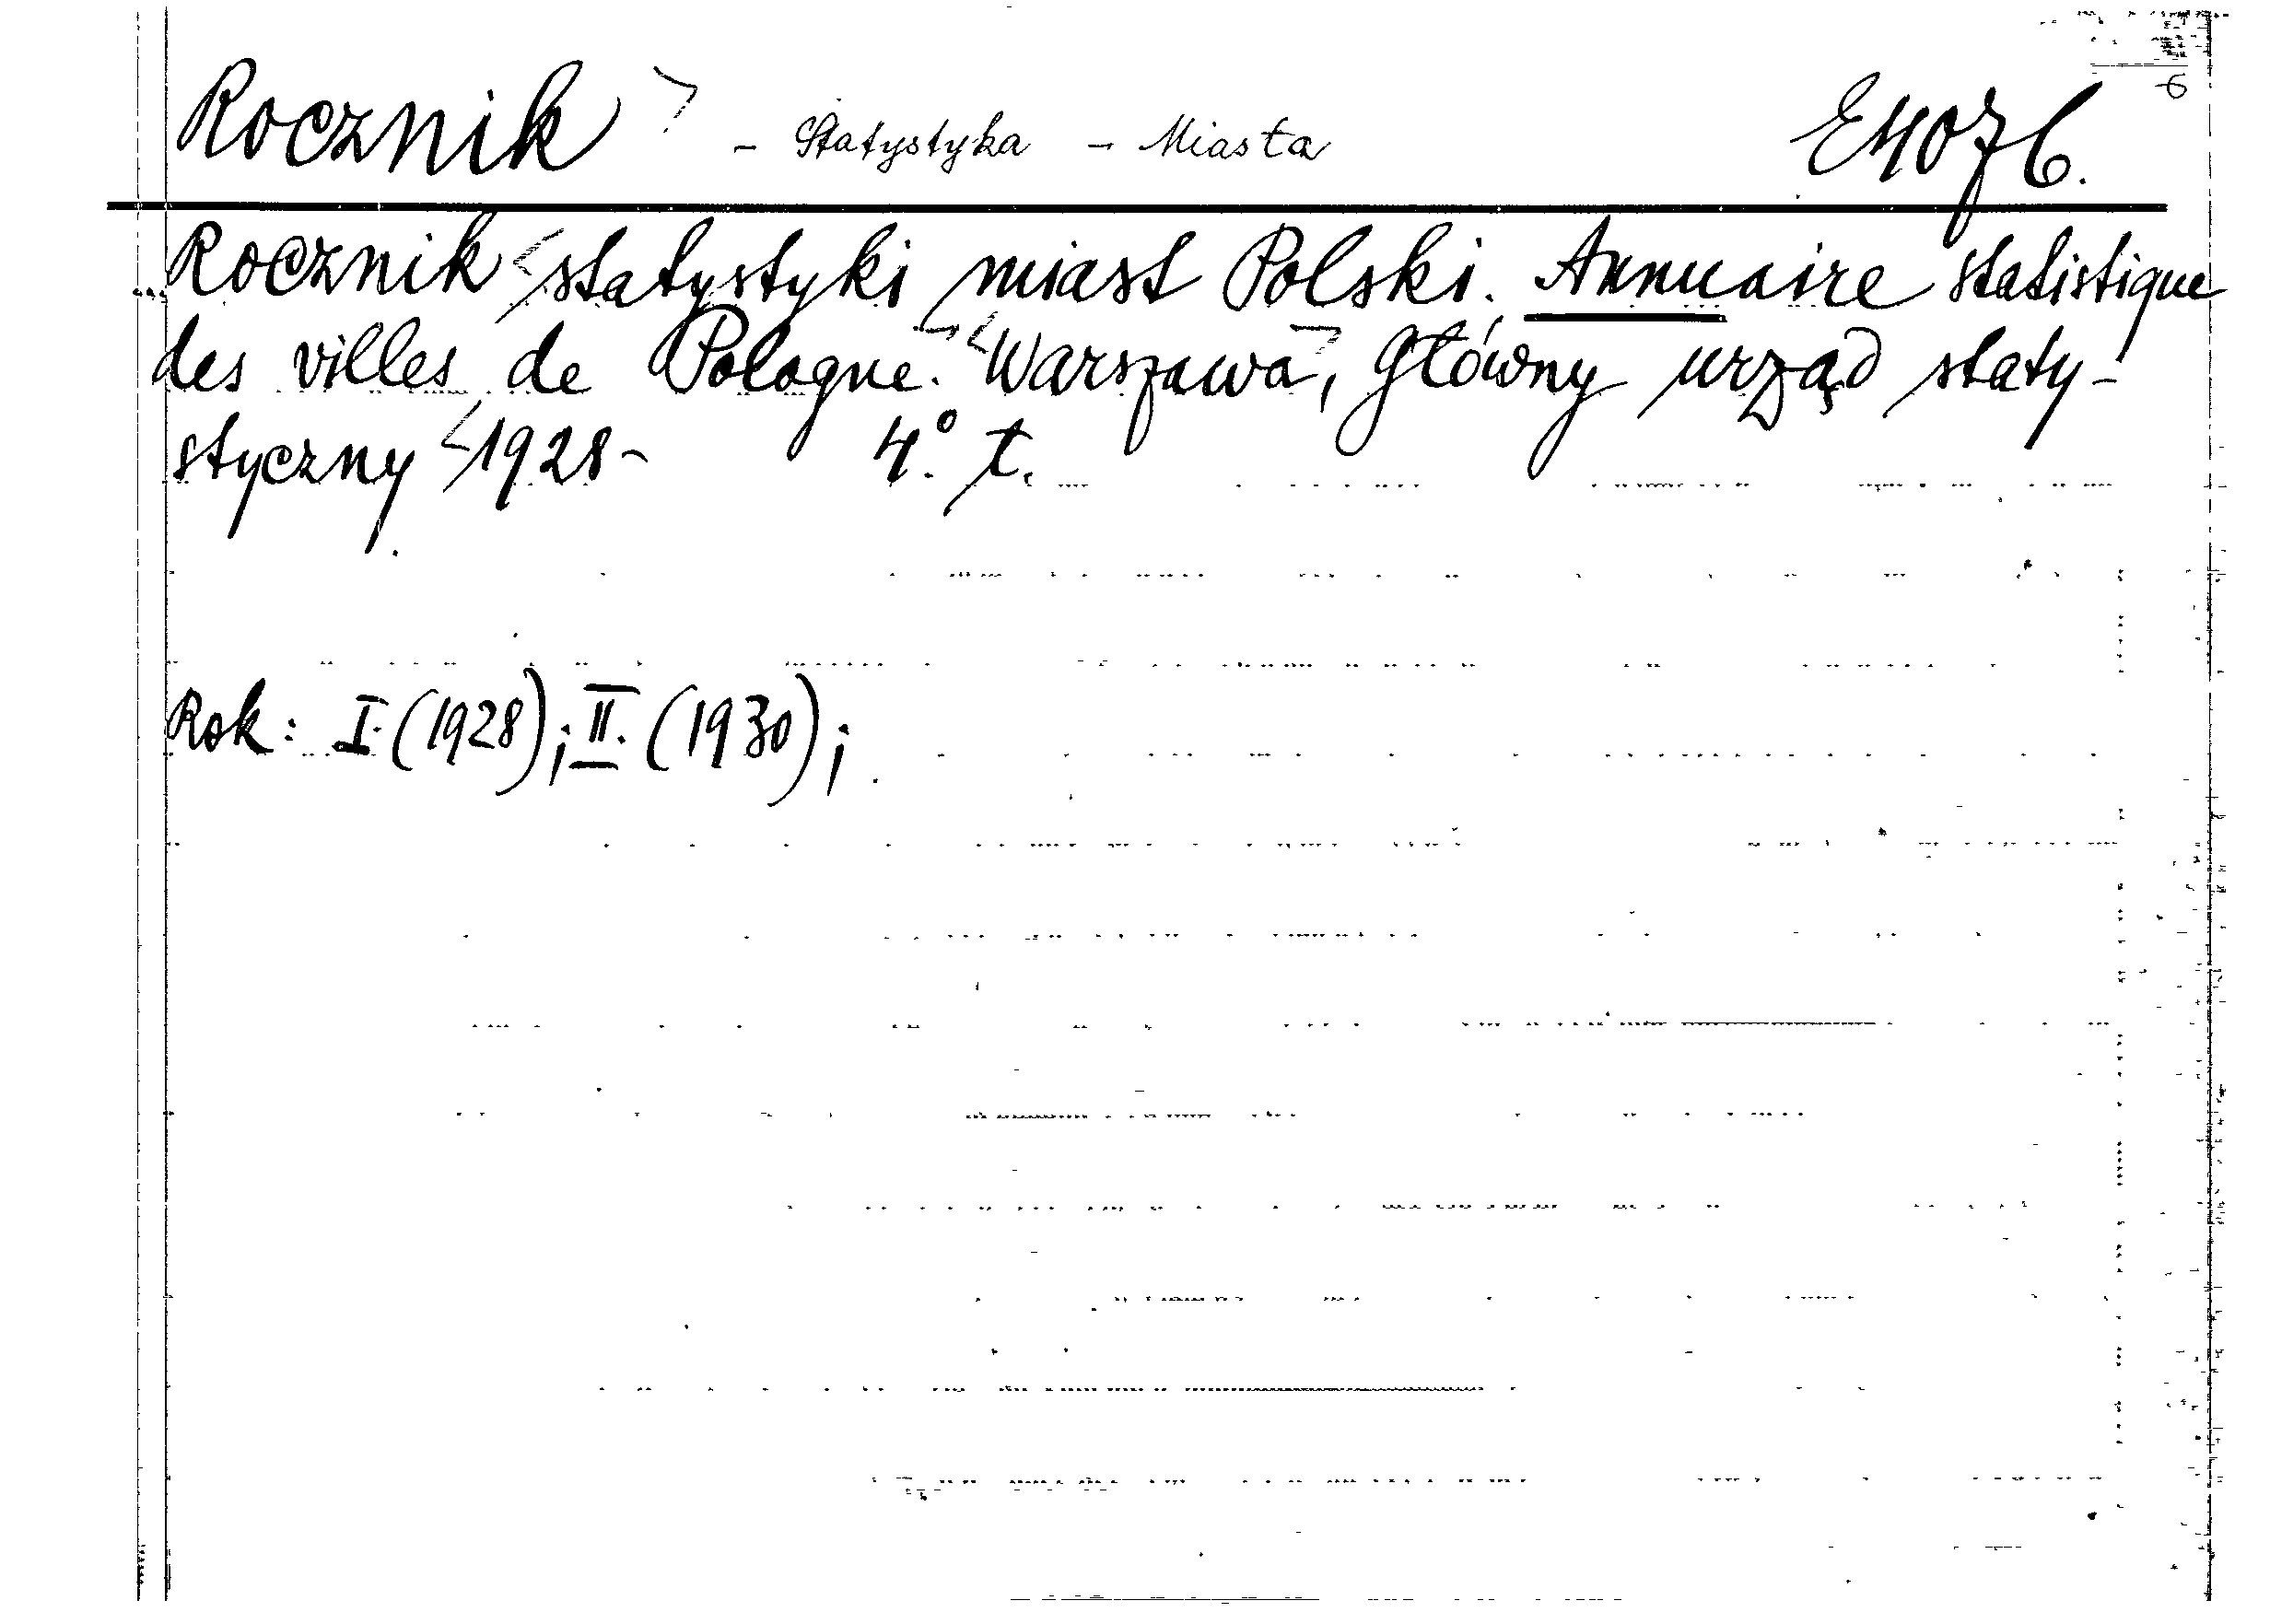 Rocznik - Statystyka - Miasta E4076.
6
Rocznik statystyki miast Polski. Annuaire statistique
des villes de Pologne. Warszawa, Główny urząd staty-
styczny 1928- 4° t.
Rok: I. (1928); II. (1930);